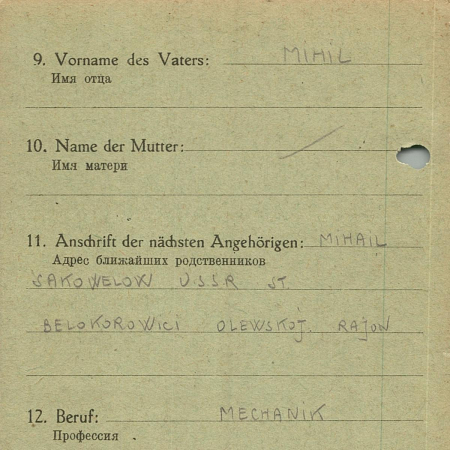 9. Vorname des Vaters: MIHIL
Имя отца
10. Name der Mutter:
Имя матери
11. Anschrift der nächsten Angehörigen: MIHAIL
Адрес ближайших родственников
SAKOWELOW USSR ST.
BELOKOROWICI OLEWSKOJ. RAJON
12. Beruf: MECHANIK
Профессия